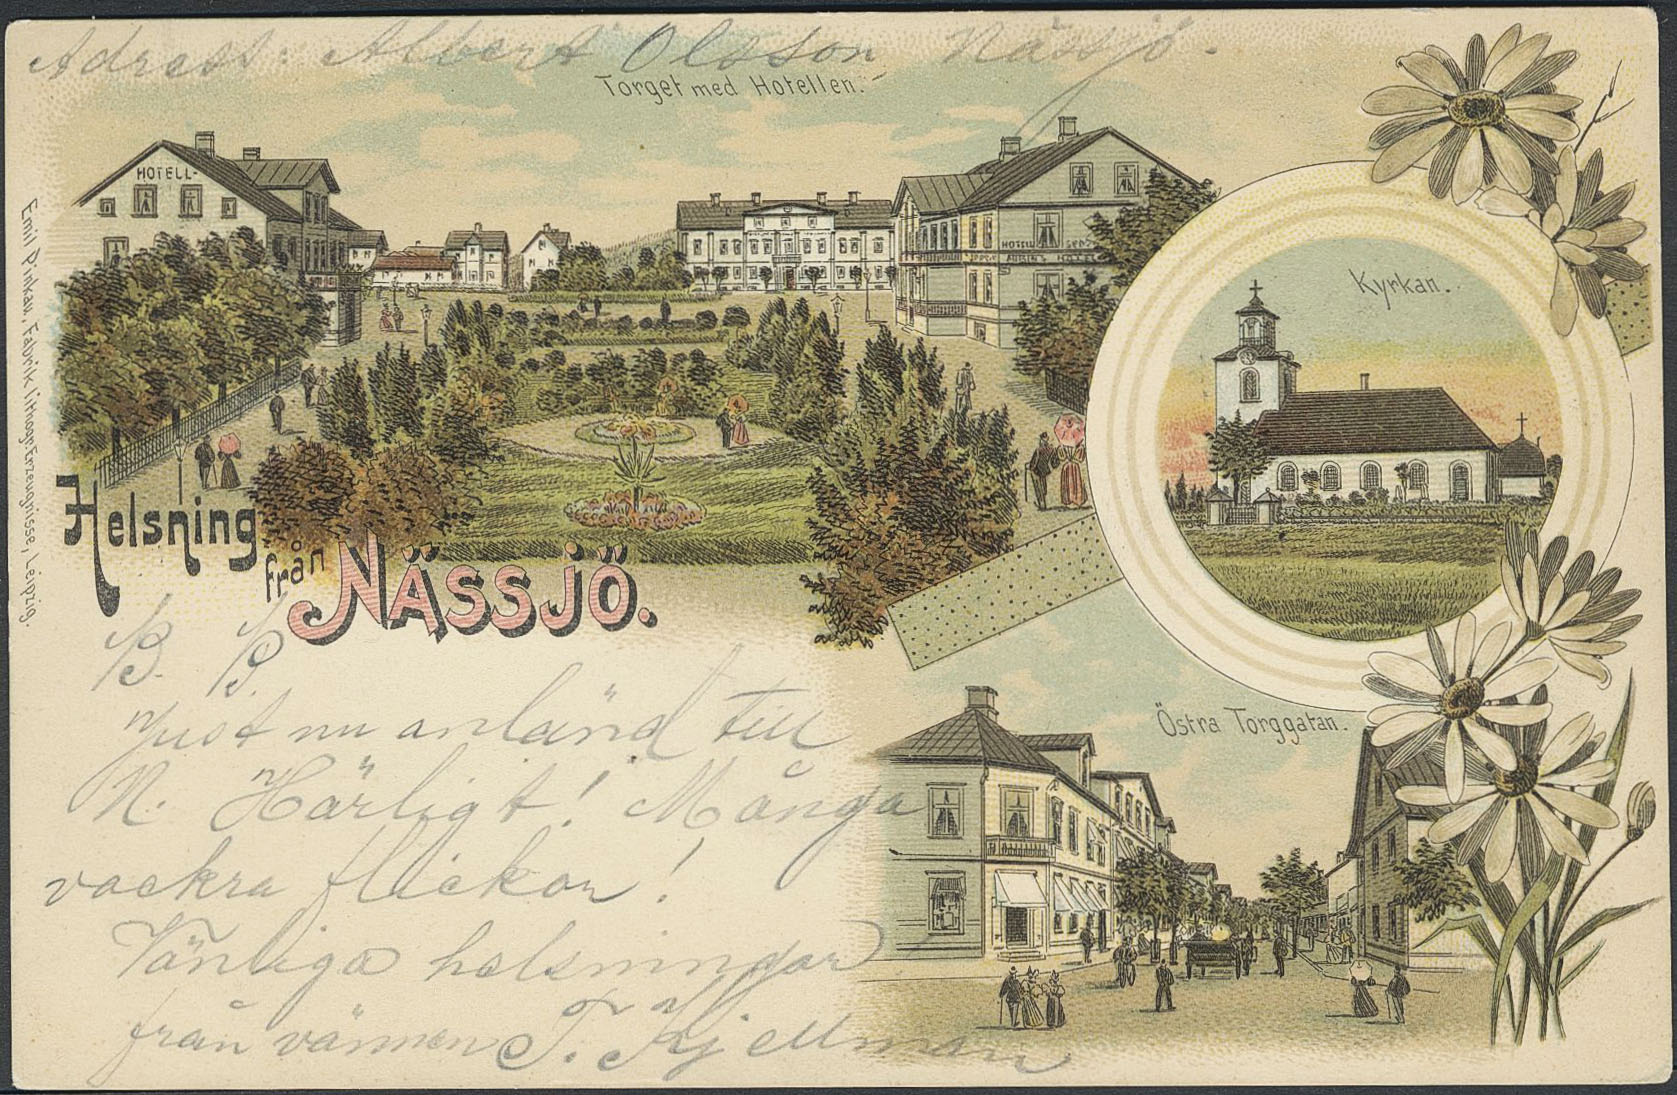 Adress: Albert Olsson Nässjö.
Torget med Hotellen.
HOTELL
HOTELL
Kyrkan.
Helsning
från
NÄSSJÖ.
Emil Pinkau, Fabrik lithogr. Erzeugnisse, Leipzig.
Östra Torggatan.
B. B.
Just nu anländ till
N. Härligt! Många
vackra flickor!
Vänliga helsningar
från vännen T. Kjellman